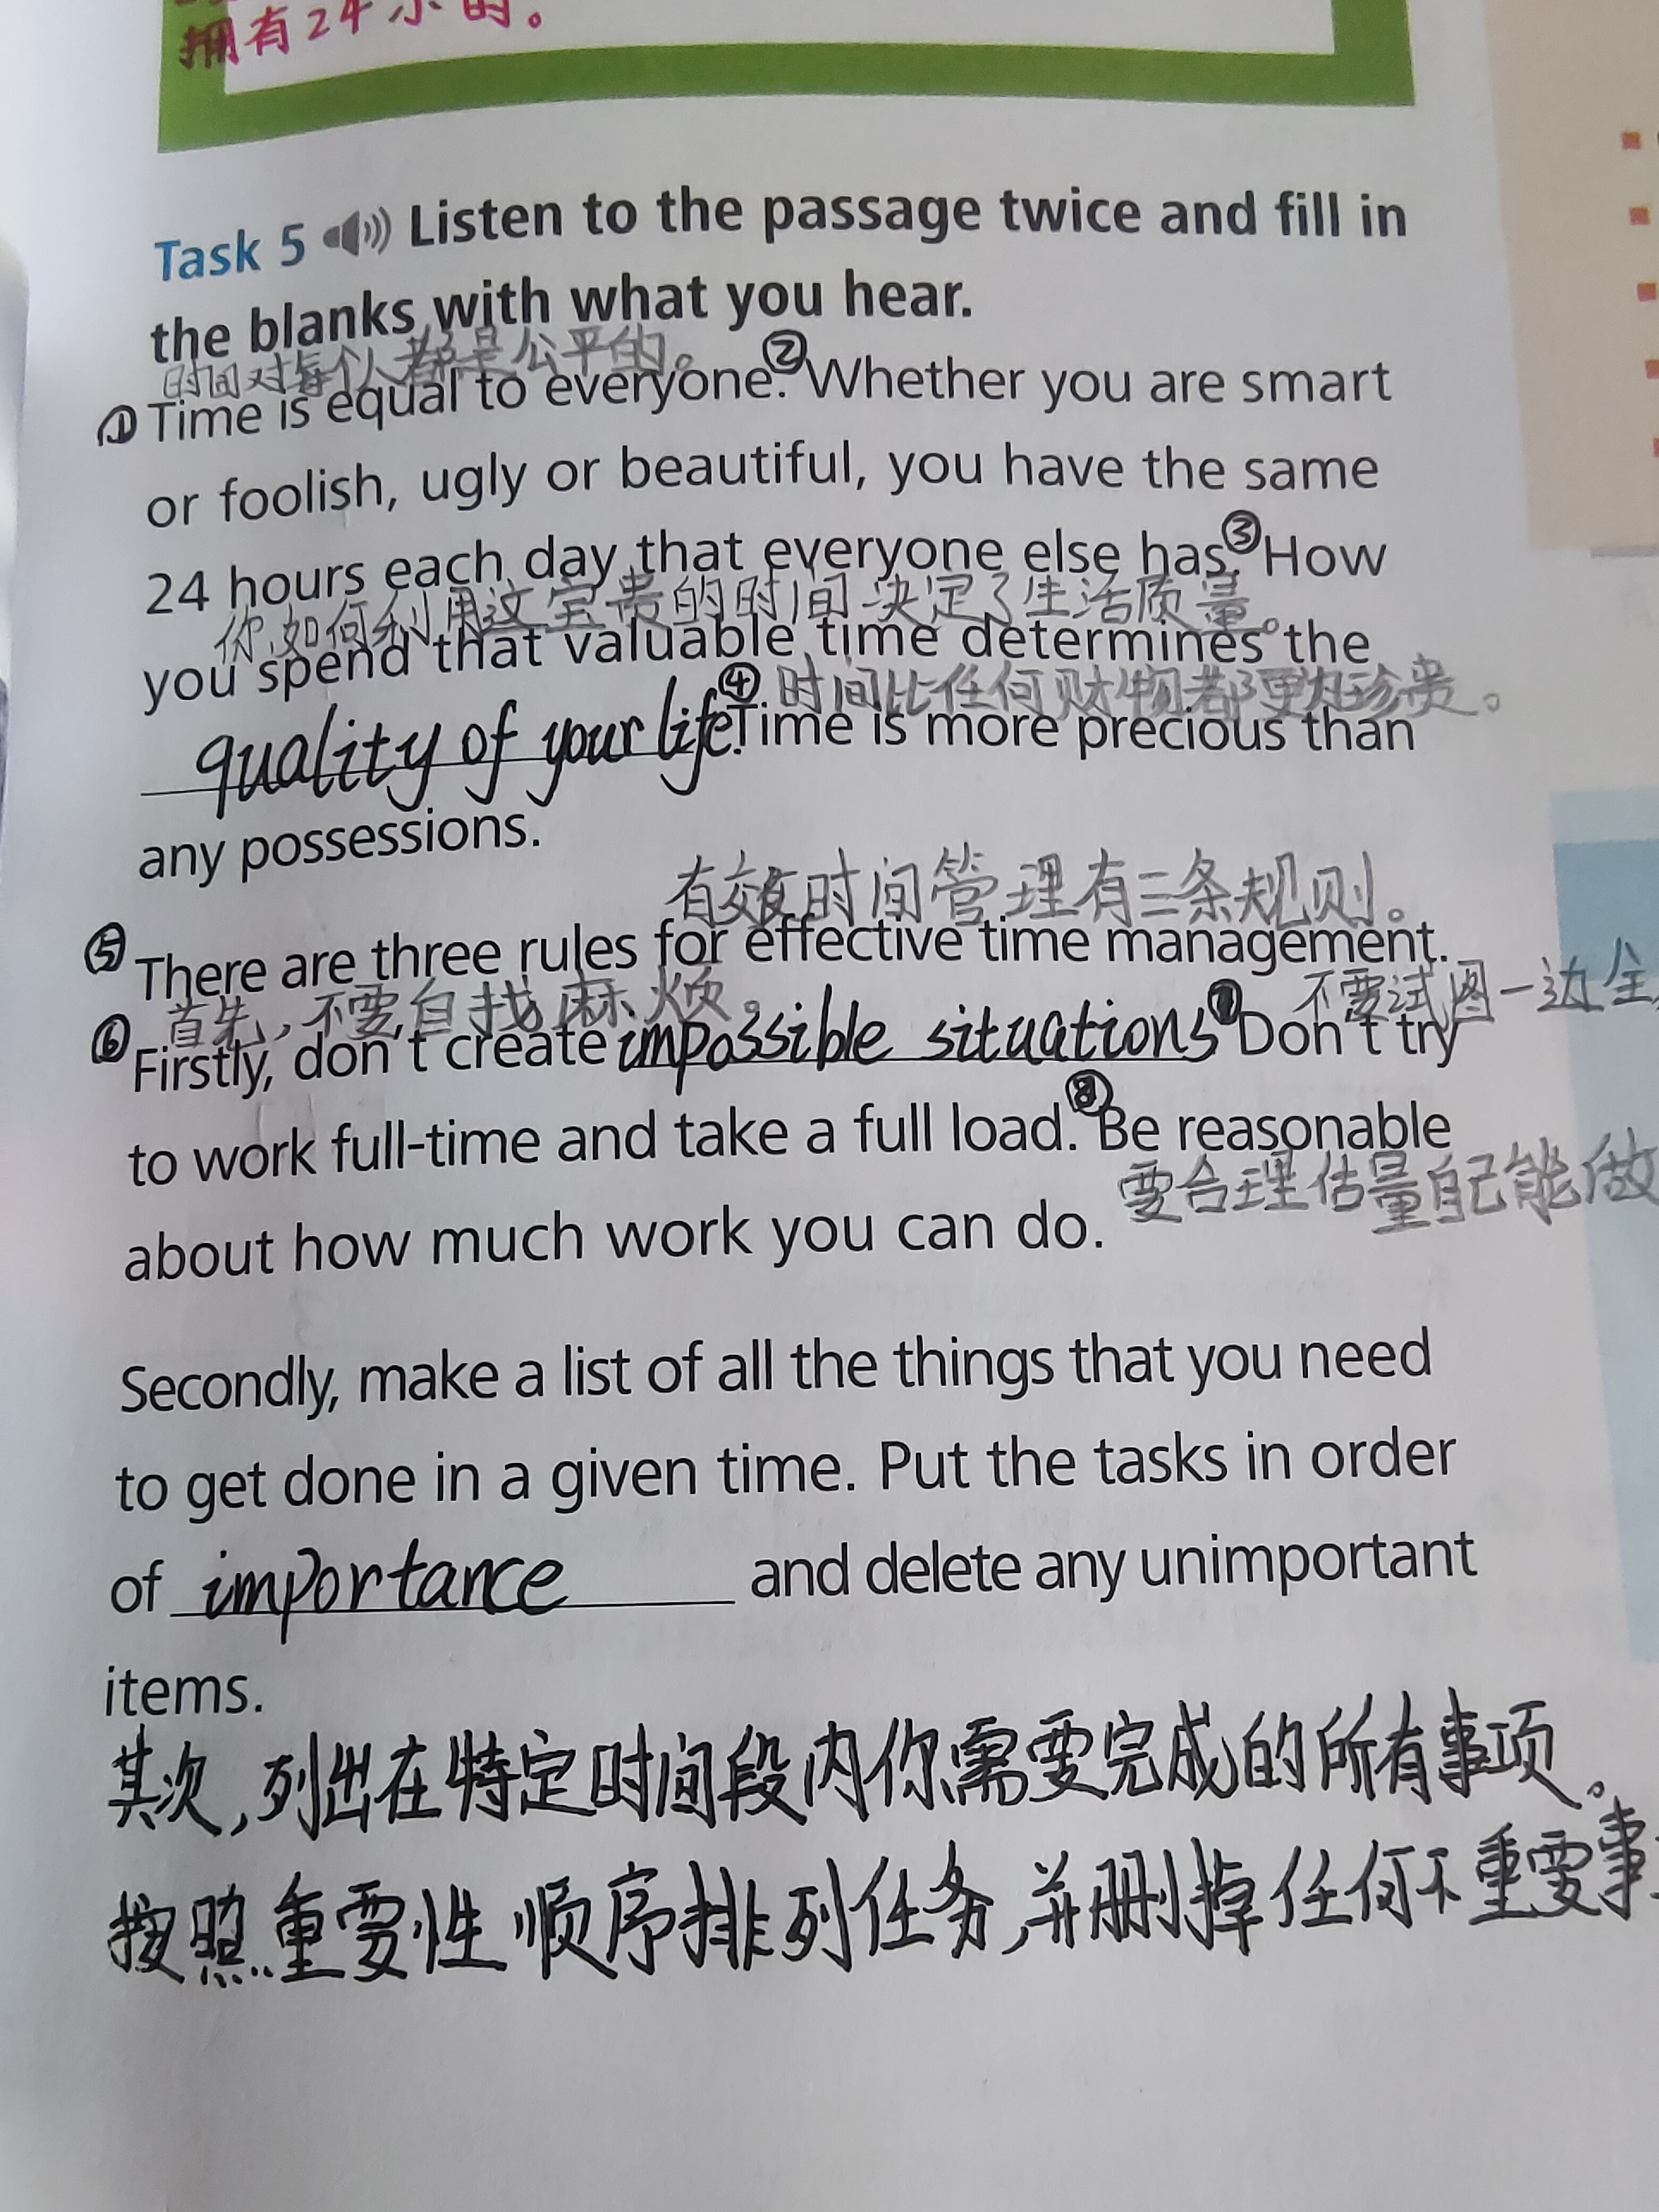 拥有24小时。
Task 5 Listen to the passage twice and fill in
the blanks with what you hear.
时间对每个人都是公平的。
① Time is equal to everyone. ② Whether you are smart
or foolish, ugly or beautiful, you have the same
24 hours each day that everyone else has. ③ How
你如何利用这宝贵的时间决定了生活质量。
you spend that valuable time determines the
时间比任何财物都更为珍贵。
quality of your life. ④ Time is more precious than
any possessions.
有效时间管理有三条规则。
⑤ There are three rules for effective time management.
首先,不要自找麻烦。 不要试图一边全
⑥ Firstly, don't create impossible situations ⑦ Don't try
to work full-time and take a full load. ⑧ Be reasonable
要合理估量自己能做
about how much work you can do.
Secondly, make a list of all the things that you need
to get done in a given time. Put the tasks in order
of importance and delete any unimportant
items.
其次,列出在特定时间段内你需要完成的所有事项。
按照重要性顺序排列任务,并删掉任何不重要事